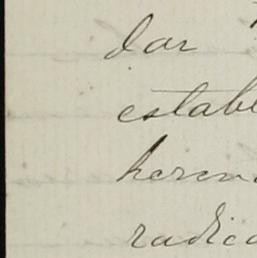 dar
estab
herm
radic